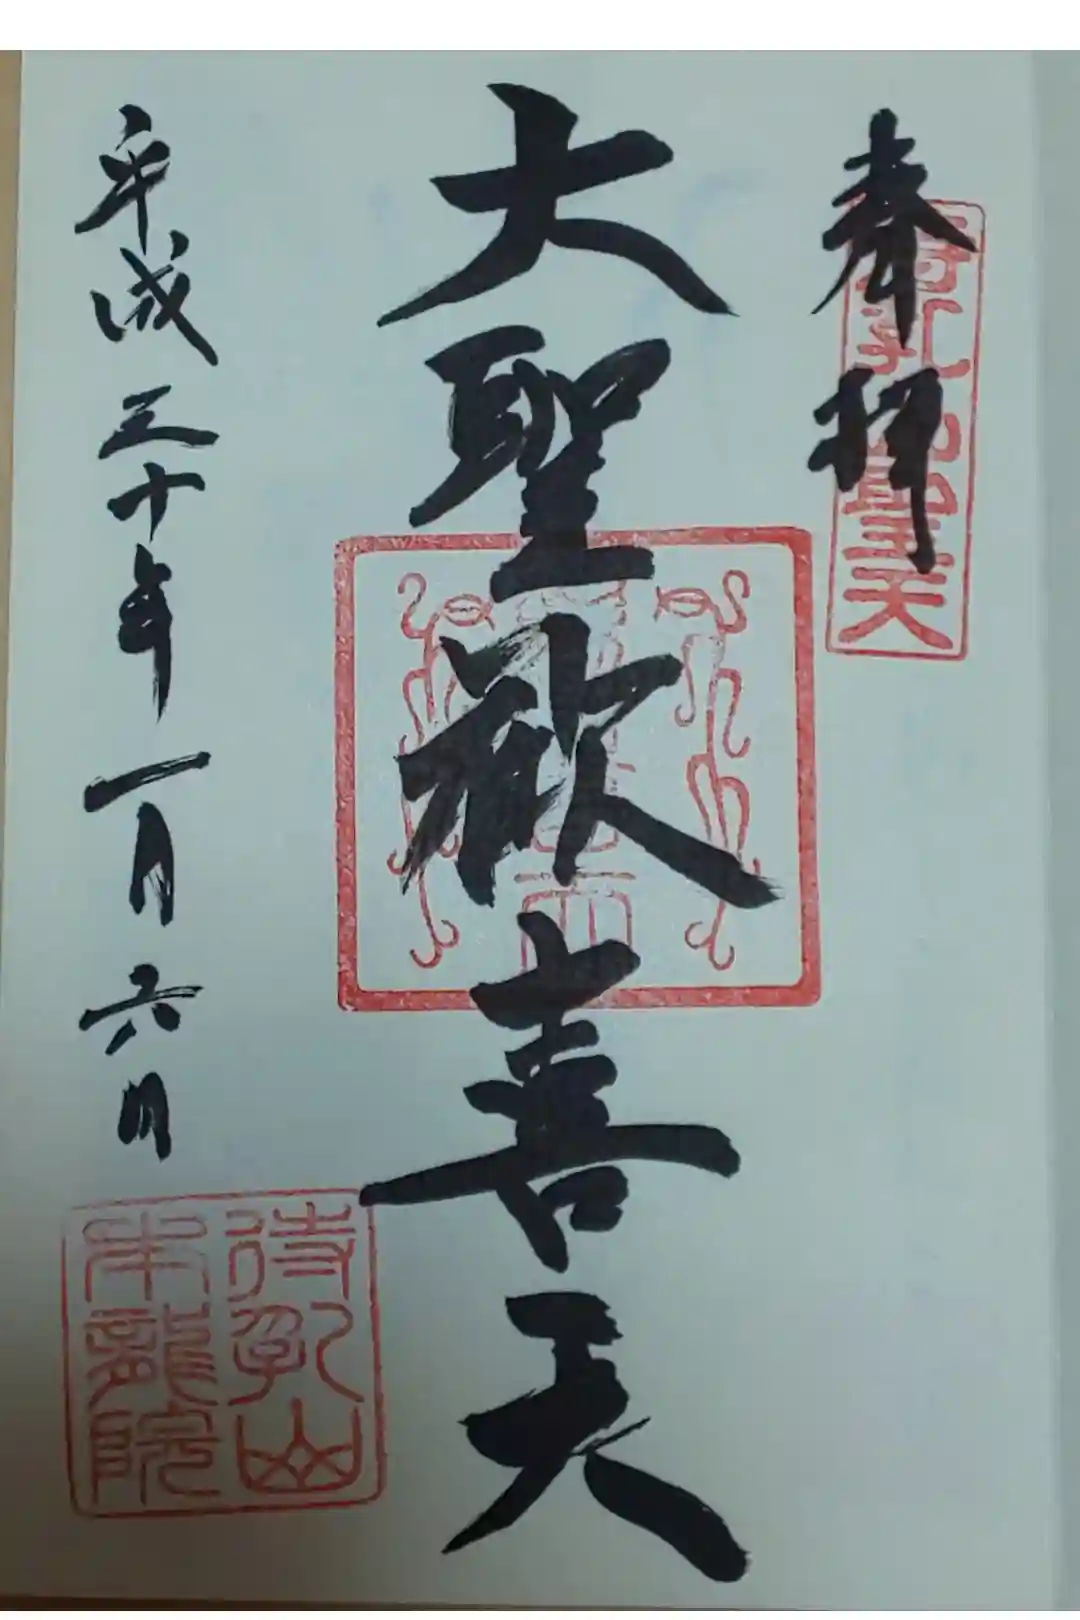 奉拝
待乳山聖天
大聖歓喜天
平成三十年一月六日
待乳山
本龍院